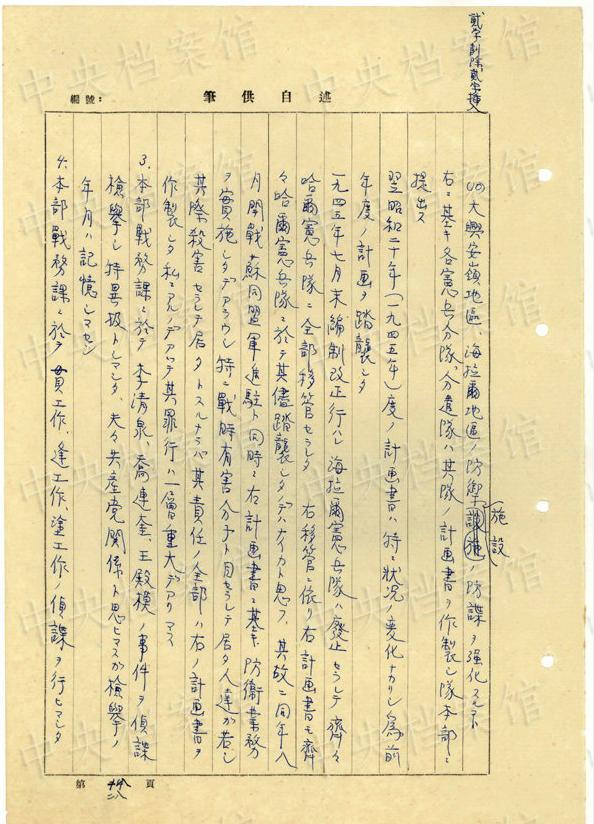 貳字削除貳字挿入
述自供筆
編號：
(10)大興安嶺地區、海拉爾地區ノ防禦設施ノ防諜ヲ強化スルコト
施設
右ニ基キ各憲兵分隊、分遣隊ハ其隊ノ計画書ヲ作製シ隊本部ニ
提出ス
翌昭和二十年(一九四五年)度ノ計画書ハ特ニ状況ノ変化ナカリシ為前
年度ノ計画ヲ踏襲シタ
一九四五年七月末編制改正行ハレ海拉爾憲兵隊ハ廢止セラレテ齊々
哈爾憲兵隊ニ全部移管セラレタ 右移管ニ依リ右計画書モ齊
々哈爾憲兵隊ニ於テ其儘踏襲シタノデハナイカト思フ、其故ニ同年八
月開戦ソ蘇同盟軍進駐ト同時ニ右計画書ニ基キ防衛業務
ヲ實施シタデアラウシ特ニ戦時有害分子ト目セラレテ居タ人達が若シ
其際殺害セラレテ居タトスルナラバ其責任ノ全部ハ右ノ計画書ヲ
作製シタ私ニアルノデアッテ其罪行ハ一層重大デアリマス
3.本部戦務課ニ於テ李清泉、喬連奎、王殿模ノ事件ヲ偵諜
檢擧シ特異扱トシマシタ、夫々共産党關係ト思ヒマスガ檢擧ノ
年月ハ記憶シマセン
4.本部戦務課ニ於テ貝工作、逢工作、塗工作ノ偵諜ヲ行ヒマシタ
第 頁
中央档案馆